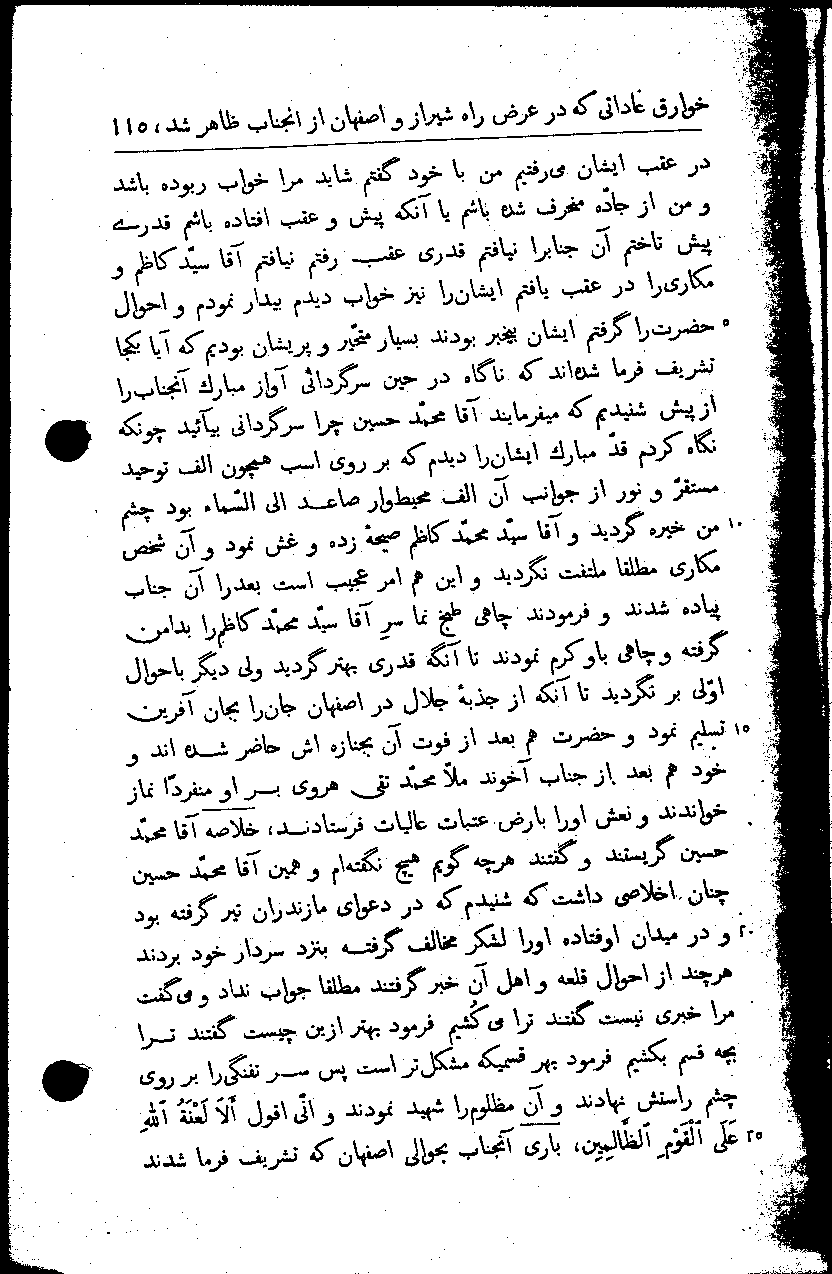 خوارق عاداتی که در عرض راه شیراز و اصفهان از انجناب ظاهر شد، ۱۱٥
در عقب ایشان می‌رفتیم من با خود گفتم شاید مرا خواب ربوده باشد
و من از جادّه منحرف شده باشم یا آنکه پیش و عقب افتاده باشم قدرے
پیش تاختم آن جنابرا نیافتم قدری عقب رفتم نیافتم آقا سیّد کاظم و
مکاری‌را در عقب یافتم ایشان‌را نیز خواب دیدم بیدار نمودم و احوال
٥ حضرت‌را گرفتم ایشان بیخبر بودند بسیار متحیّر و پریشان بودیم که آیا بکجا
تشریف فرما شده‌اند که ناگاه در حین سرگردانی آواز مبارك آنجناب‌را
از پیش شنیدیم که میفرمایند آقا محمّد حسین چرا سرگردانی بیآئید چونکه
نگاه کردم قدّ مبارك ایشان‌را دیدم که بر روی اسب همچون الف توحید
مستقرّ و نور از جوانب آن الف محیط‌وار صاعد الی السّماء بود چشم
۱۰ من خیره گردید و آقا سیّد محمّد کاظم صیحهٔ زده و غش نمود و آن شخص
مکاری مطلقا ملتفت نگردید و این هم امر عجیب است بعدرا آن جناب
پیاده شدند و فرمودند چاهی طبخ نما سر آقا سیّد محمّد کاظم‌را بدامن
گرفته و چاهی باو کرم نمودند تا آنگه قدری بهتر گردید ولی دیگر باحوال
اوّلی بر نگردید تا آنکه از جذبهٔ جلال در اصفهان جان‌را بجان آفرین
۱٥ تسلیم نمود و حضرت هم بعد از فوت آن بجنازه اش حاضر شده اند و
خود هم بعد از جناب آخوند ملاّ محمّد تقی هروی بر او منفردًا نماز
خواندند و نعش اورا بارض عتبات عالیات فرستادند، خلاصه آقا محمّد
حسین گریستند و گفتند هرچه گویم هیچ نگفته‌ام و همین آقا محمّد حسین
چنان اخلاصی داشت که شنیدم که در دعوای مازندران تیر گرفته بود
۲۰ و در میدان اوفتاده اورا لشکر مخالف گرفته بنزد سردار خود بردند
هرچند از احوال قلعه و اهل آن خبر گرفتند مطلقا جواب نداد و می‌گفت
مرا خبری نیست گفتند ترا می کُشیم فرمود بهتر ازین چیست گفتند ترا
بچه قسم بکشیم فرمود بهر قسمیکه مشکل‌تر است پس سر تفنگی‌را بر روی
چشم راستش نهادند و آن مظلوم‌را شهید نمودند و انّی اقول أَلَا لَعْنَةُ ٱللهِ
۲٥ عَلَی ٱلْقَوْمِ ٱلظَّالِمِین، باری آنجناب بحوالی اصفهان که تشریف فرما شدند